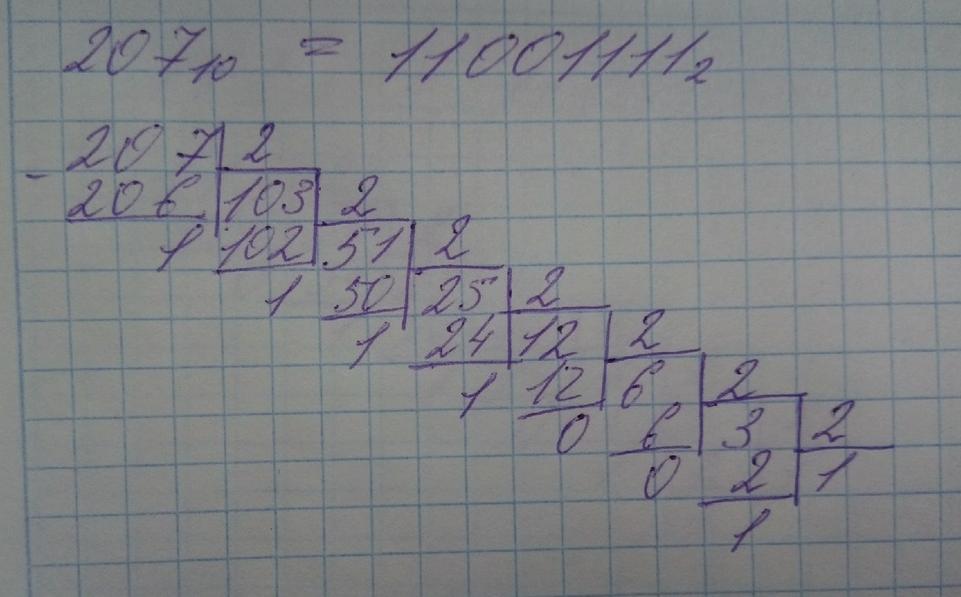 207₁₀ = 11001111₂
- 207 2
206 103 2
1 102 51 2
1 50 25 2
1 24 12 2
1 12 6 2
0 6 3 2
0 2 1
1